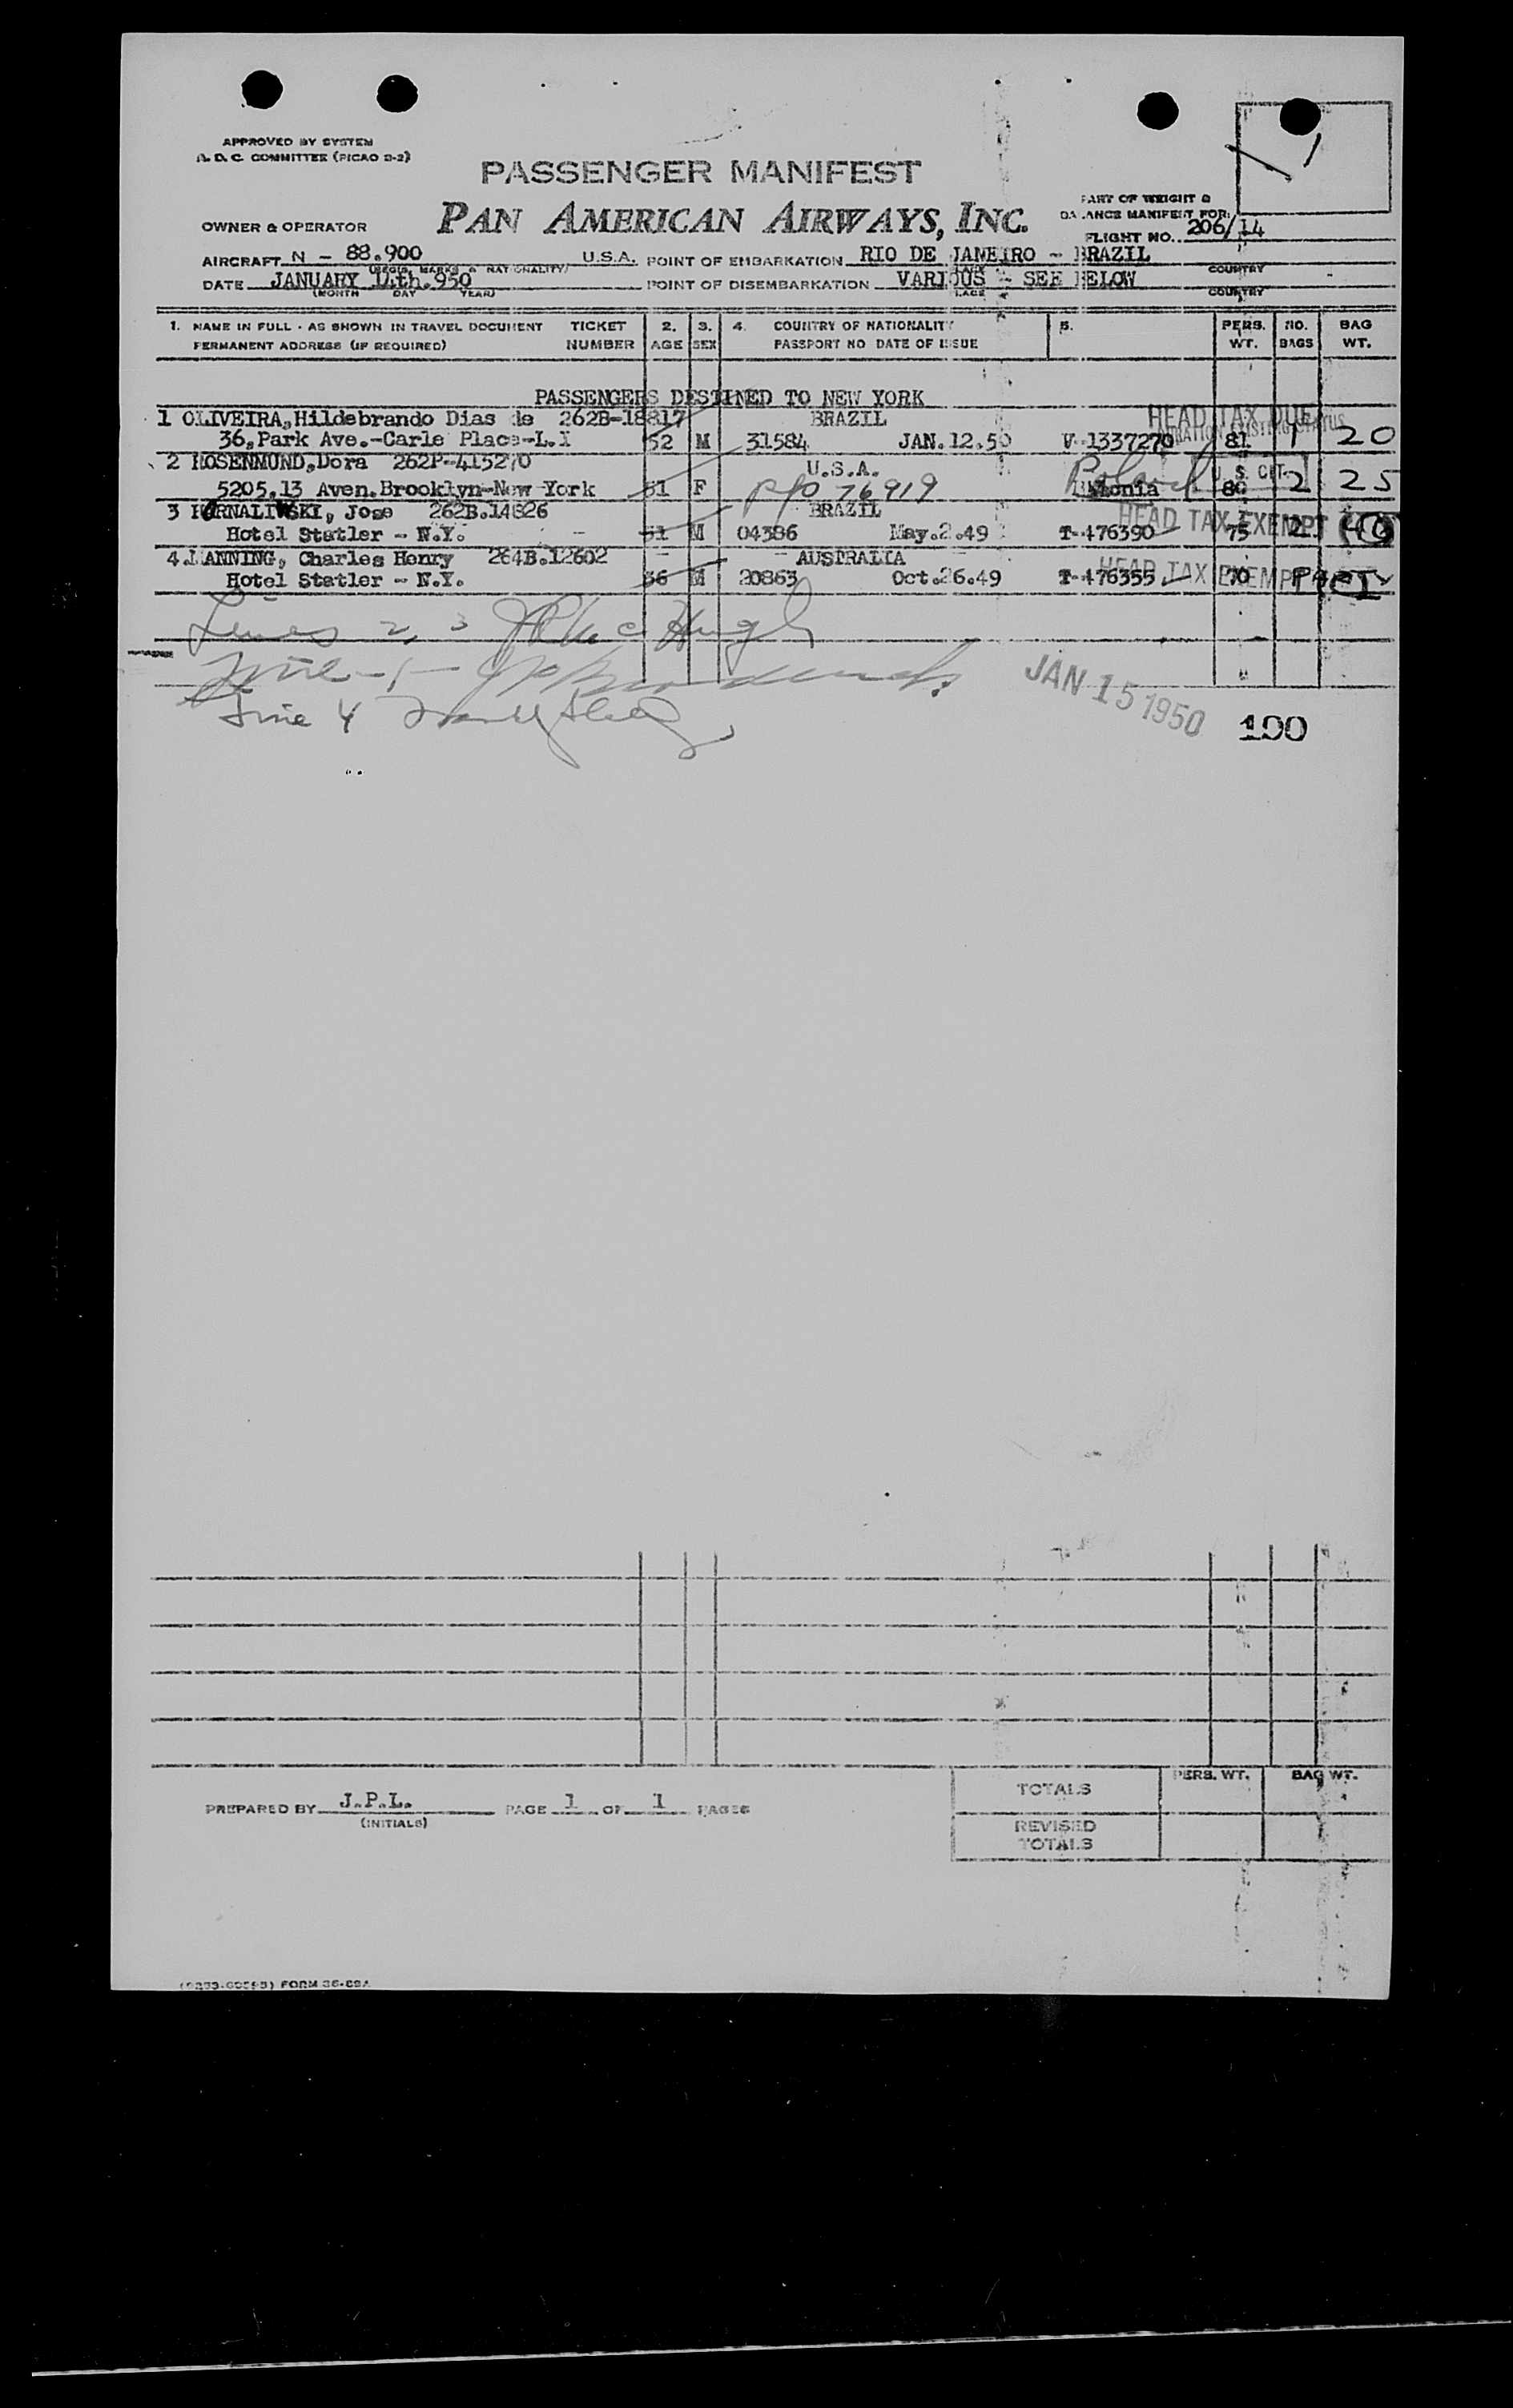 APPROVED BY SYSTEM
A. D. C. COMMITTEE (PICAO D-2)
PASSENGER MANIFEST
PAN AMERICAN AIRWAYS, INC.
PART OF WEIGHT &
BALANCE MANIFEST FOR:
OWNER & OPERATOR
FLIGHT NO. 206/14
AIRCRAFT N - 88.900 U.S.A. POINT OF EMBARKATION RIO DE JANEIRO - BRAZIL
(REGIS. MARKS & NATIONALITY) PLACE COUNTRY
DATE JANUARY 14th.950 POINT OF DISEMBARKATION VARIOUS - SEE BELOW
(MONTH DAY YEAR) PLACE COUNTRY
1. NAME IN FULL - AS SHOWN IN TRAVEL DOCUMENT TICKET 2. 3. 4. COUNTRY OF NATIONALITY 5. PERS. NO. BAG
PERMANENT ADDRESS (IF REQUIRED) NUMBER AGE SEX PASSPORT NO DATE OF ISSUE WT. BAGS WT.
PASSENGERS DESTINED TO NEW YORK
1 OLIVEIRA,Hildebrando Dias de 262B-18817 BRAZIL HEAD TAX DUE
36,Park Ave.-Carle Place-L.I 52 M 31584 JAN.12.50 V-1337270 81 1 20
2 ROSENMUND,Dora 262P-415270 U.S.A. Poland U. S. CIT.
5205,13 Aven.Brooklyn-New York 51 F PPO 76919 80 2 25
3 KORNALEWSKI, Jose 262B.14826 BRAZIL HEAD TAX EXEMPT
Hotel Statler - N.Y. 51 M 04386 May.2.49 T-476390 75 2 40
4.LANNING, Charles Henry 264B.12602 - AUSTRALIA - HEAD TAX EXEMPT
Hotel Statler - N.Y. 36 M 20863 Oct.26.49 T-476355 70 PARTY
Lines 2, 3
Line 1
Line 4
JAN 15 1950
100
PREPARED BY J.P.L. PAGE 1 OF 1 PAGES
(INITIALS)
PERS. WT. BAG WT.
TOTALS
REVISED
TOTALS
FORM 36-89A